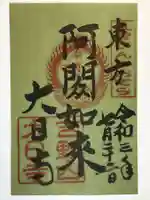 東方
阿閦如来
大日寺
令和三年
七月二十二日